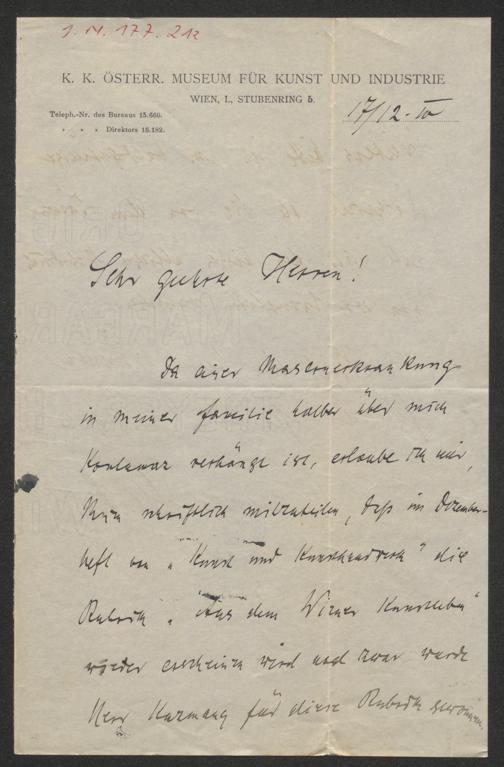 J. N. 177.212
K. K. ÖSTERR. MUSEUM FÜR KUNST UND INDUSTRIE
WIEN, I., STUBENRING 5.
Teleph.-Nr. des Bureaus 15.660.
„ „ „ Direktors 18.182.
17/12.
Sehr geehrte Herren!
Da einer Masernerkrankung
in meiner Familie halber über mich
Kontumaz verhängt ist, erlaube ich mir,
Ihnen schriftlich mitzuteilen, daß im Dezember-
heft von „Kunst und Kunsthandwerk" die
Rubrik „Aus dem Wiener Kunstleben"
wieder erscheinen wird und zwar wurde
Herr für diese Rubrik gewonnen